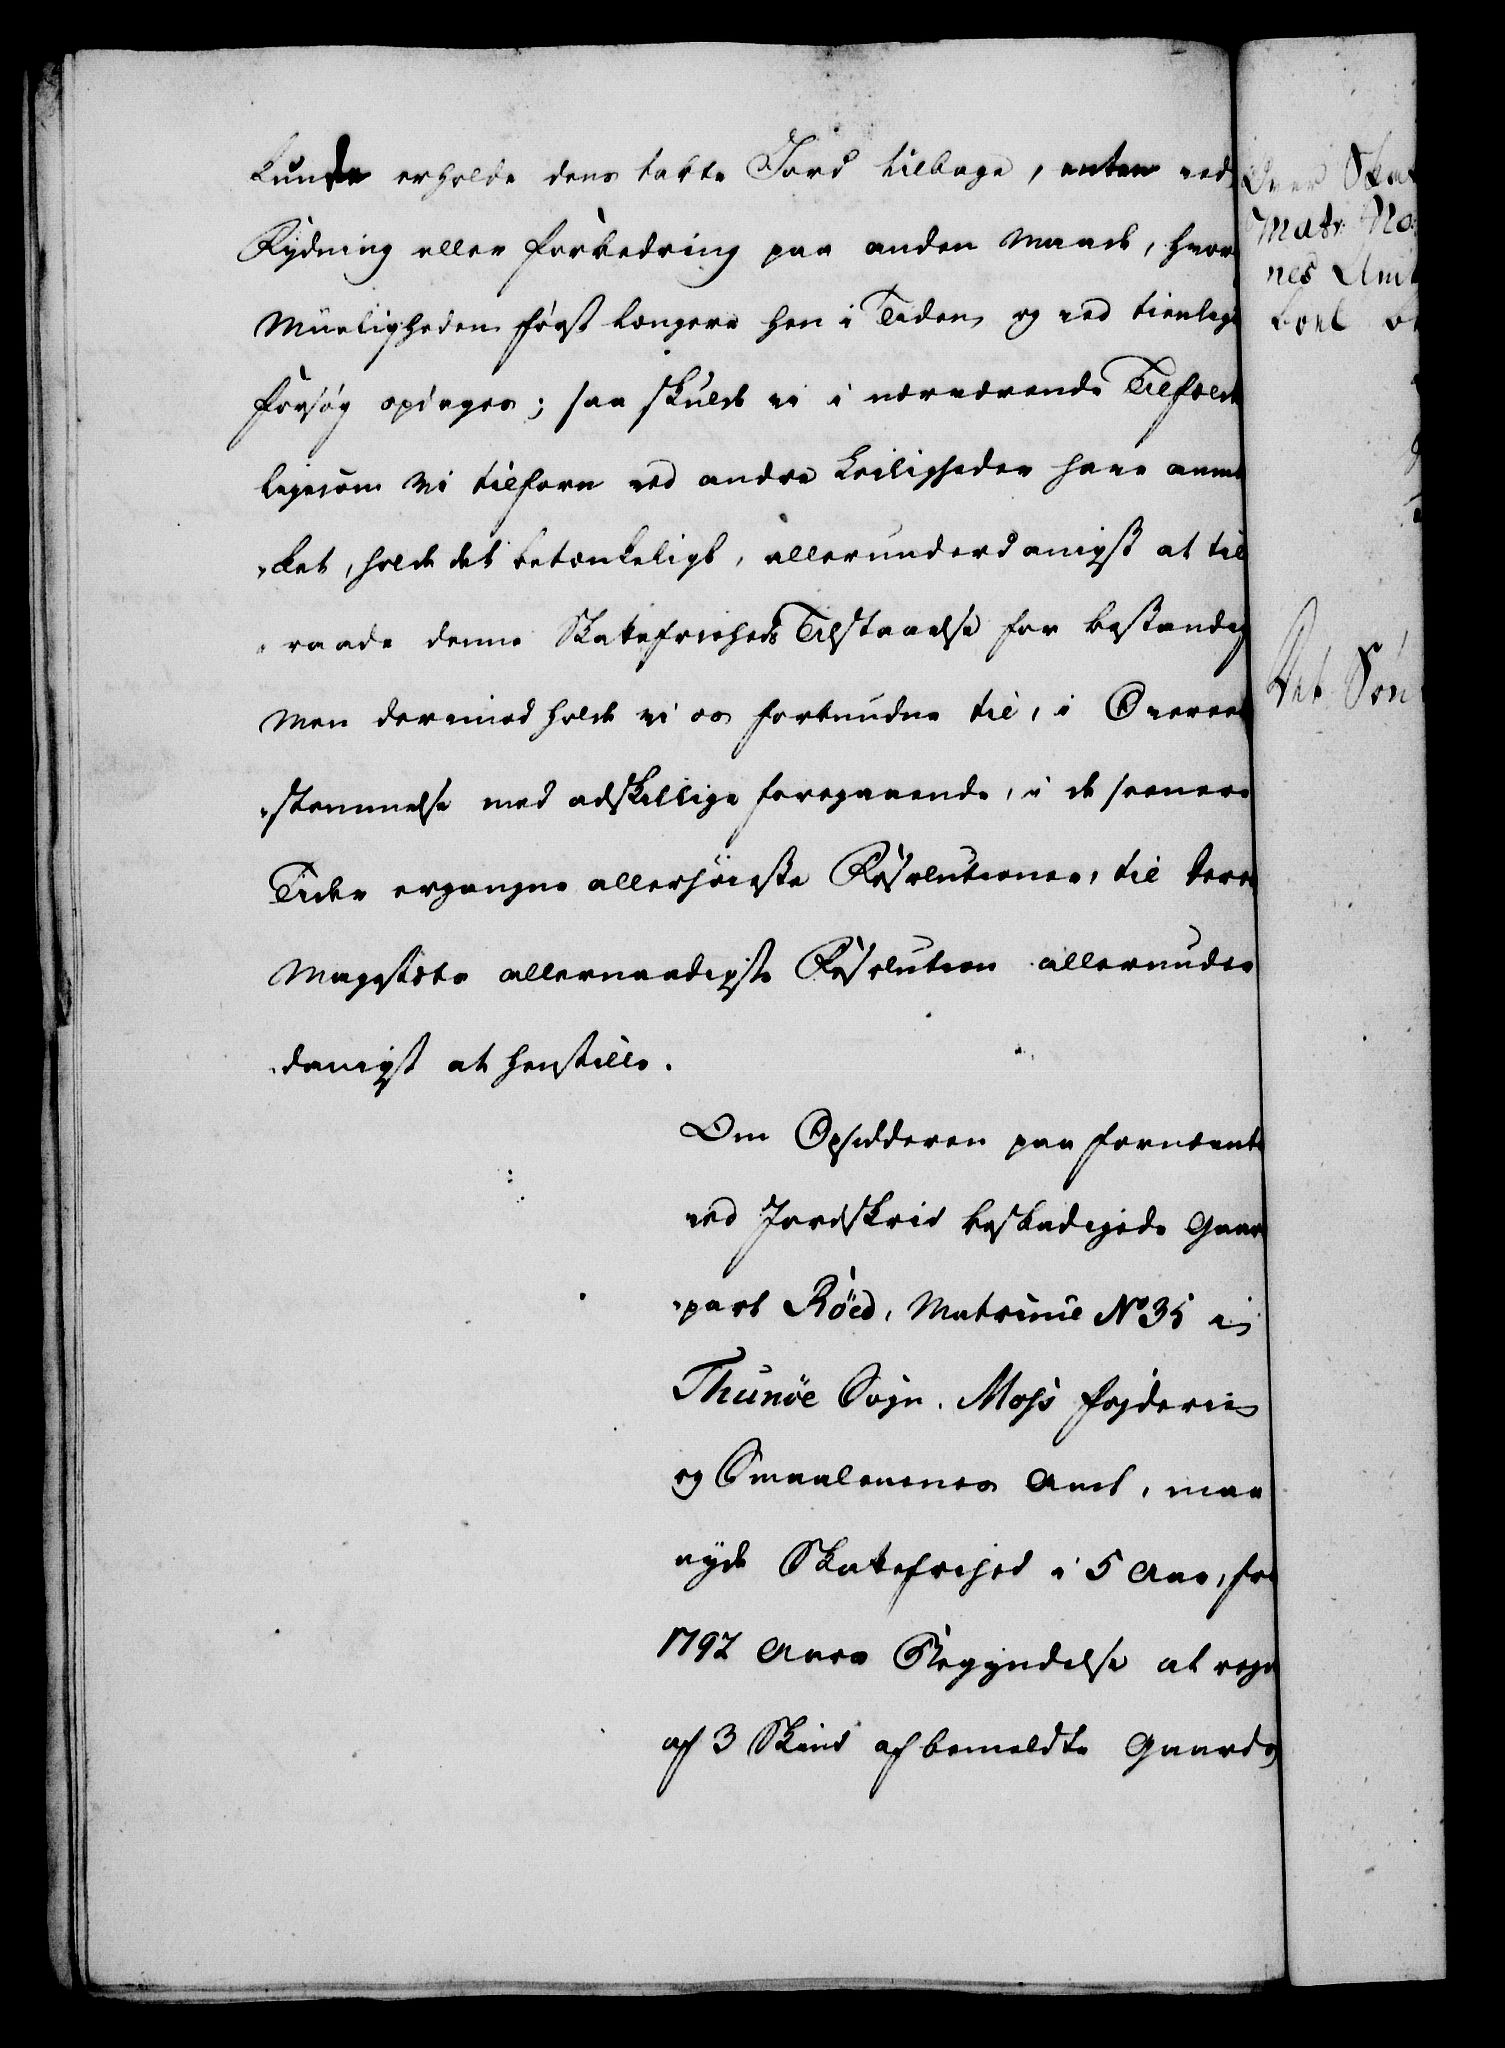 kunde erholde dens tabte Jord tilbage, enten ved
Rydning eller forbedring paa anden Maade, hvor
Mueligheden først længere hen i Tiden og ved tienlige
forsøg opdages; saa skulde vi i nærværende Tilfælde
ligesom vi tilforn ved andre Leiligheder have anmær
ket, holde det betænkeligt, allerunderdanigst at til
raade denne Skattefriheds Tilstaaelse for bestandig
Men derimod holde vi os forbundne til, i Overeens
stemmelse med adskillige foregaaende, i de seenere
Tider ergangne allerhöieste Resolutioner, til Deres
Majestæts allernaadigste Resolution allerunder
danigst at henstille.
Om Opsidderen paa fornævnte
ved Jordskrid beskadigede Gaard
part Röed, Matricul No 35 i
Thunöe Sogn, Moss fogderie
og Smaalenenes Amt, maa
nyde Skattefrihed i 5 Aar, fra
1792 Aars Begyndelse at regne
af 3 Skind af bemeldte Gaards
Over Skat
Matr: No
nes Amt
Det Sön